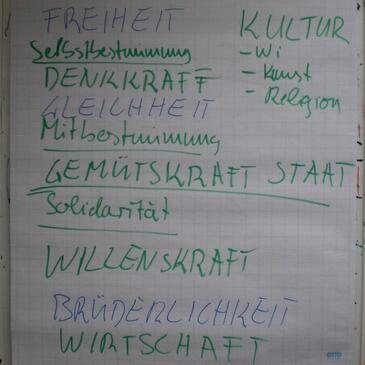 FREIHEIT
Selbstbestimmung
DENKKRAFT
GLEICHHEIT
Mitbestimmung
GEMÜTSKRAFT STAAT
Solidarität
WILLENSKRAFT
BRÜDERLICHKEIT
WIRTSCHAFT
KULTUR
- Wi
- Kunst
- Religion